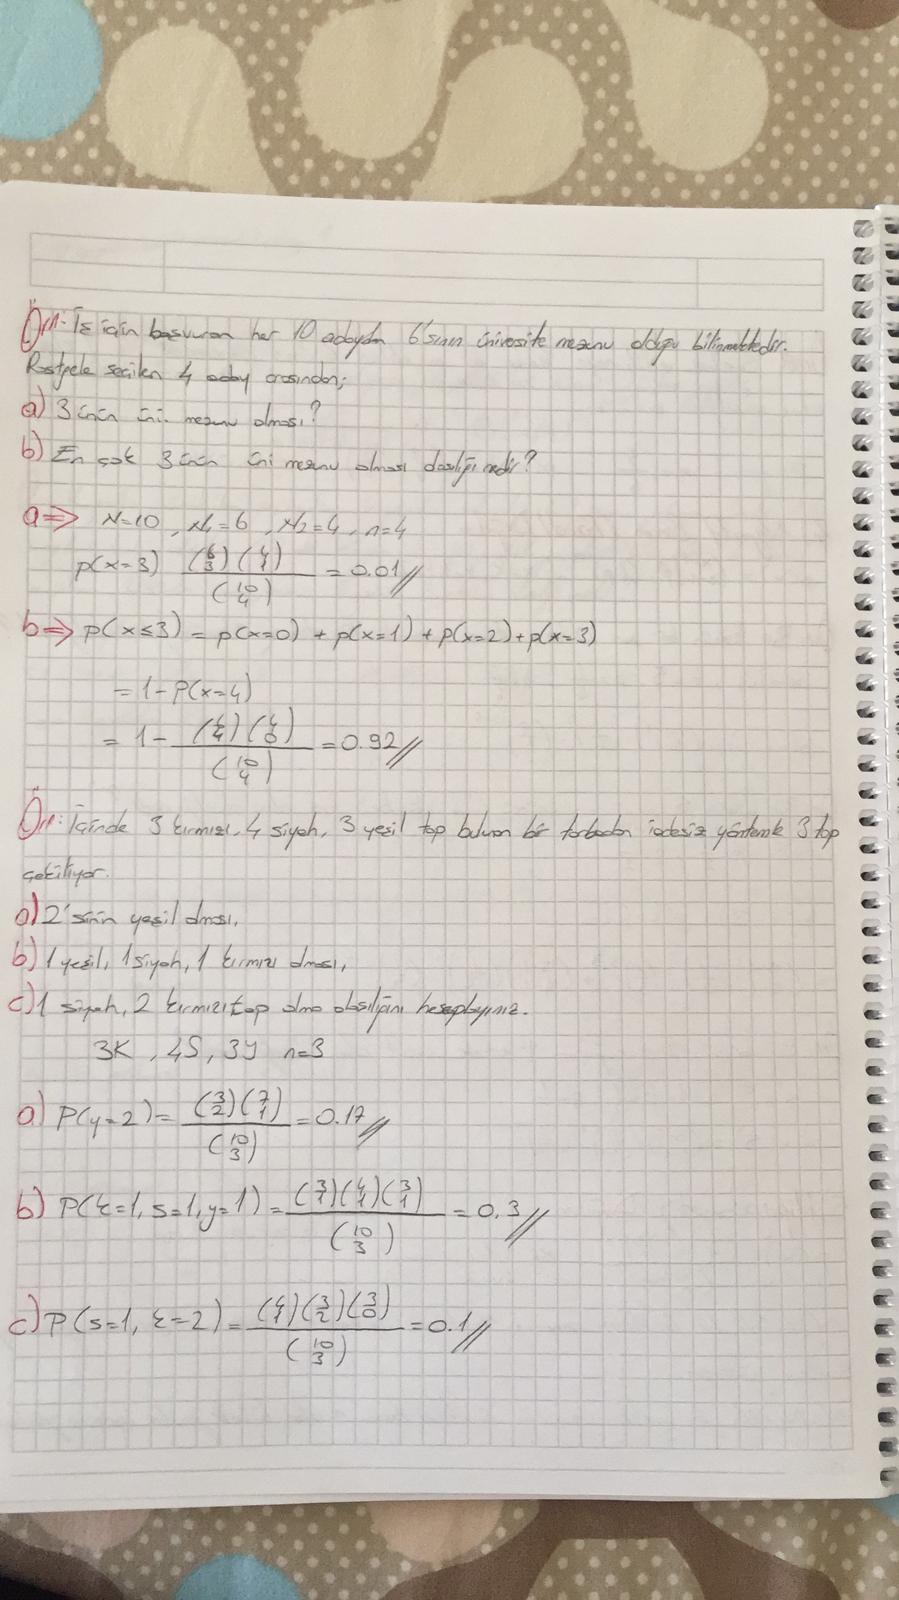 Örn: İş için başvuran her 10 adaydan 6'sının üniversite mezunu olduğu bilinmektedir.
Rastgele seçilen 4 aday arasından;
a) 3'ünün üni. mezunu olması?
b) En çok 3'ünün üni mezunu olması olasılığı nedir?
a⇒ N=10, N₁=6, N₂=4, n=4
p(x=3) (6 3)(4 1) / (10 4) = 0.01//
b⇒ p(x≤3) = p(x=0) + p(x=1) + p(x=2) + p(x=3)
= 1 - P(x=4)
= 1 - (6 4)(4 0) / (10 4) = 0.92//
Örn: İçinde 3 kırmızı, 4 siyah, 3 yeşil top bulunan bir torbadan iadesiz yöntemle 3 top
çekiliyor.
a) 2'sinin yeşil olması,
b) 1 yeşil, 1 siyah, 1 kırmızı olması,
c) 1 siyah, 2 kırmızı top olma olasılığını hesaplayınız.
3K, 4S, 3Y n=3
a) P(y=2) = (3 2)(7 1) / (10 3) = 0.17//
b) P(k=1, s=1, y=1) = (3 1)(4 1)(3 1) / (10 3) = 0.3//
c) P(s=1, k=2) = (4 1)(3 2)(3 0) / (10 3) = 0.1//